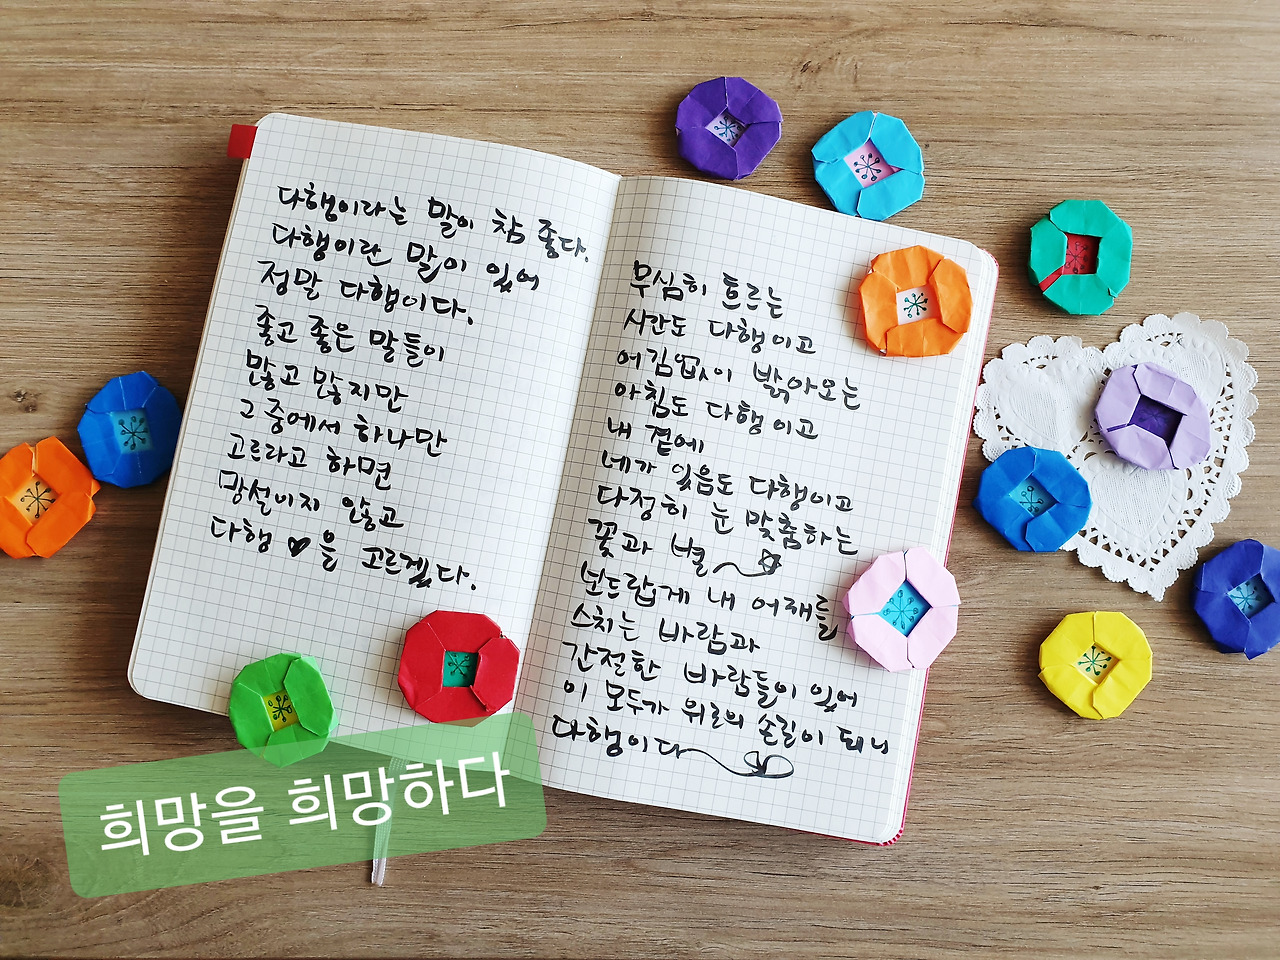 다행이라는 말이 참 좋다.
다행이란 말이 있어
정말 다행이다.
좋고 좋은 말들이
많고 많지만
그 중에서 하나만
고르라고 하면
망설이지 않고
다행♥을 고르겠다.
무심히 흐르는
시간도 다행이고
어김없이 밝아오는
아침도 다행이고
내 곁에
네가 있음도 다행이고
다정히 눈 맞춤하는
꽃과 별
보드랍게 내 어깨를
스치는 바람과
간절한 바람들이 있어
이 모두가 위로의 손길이 되니
다행이다
희망을 희망하다